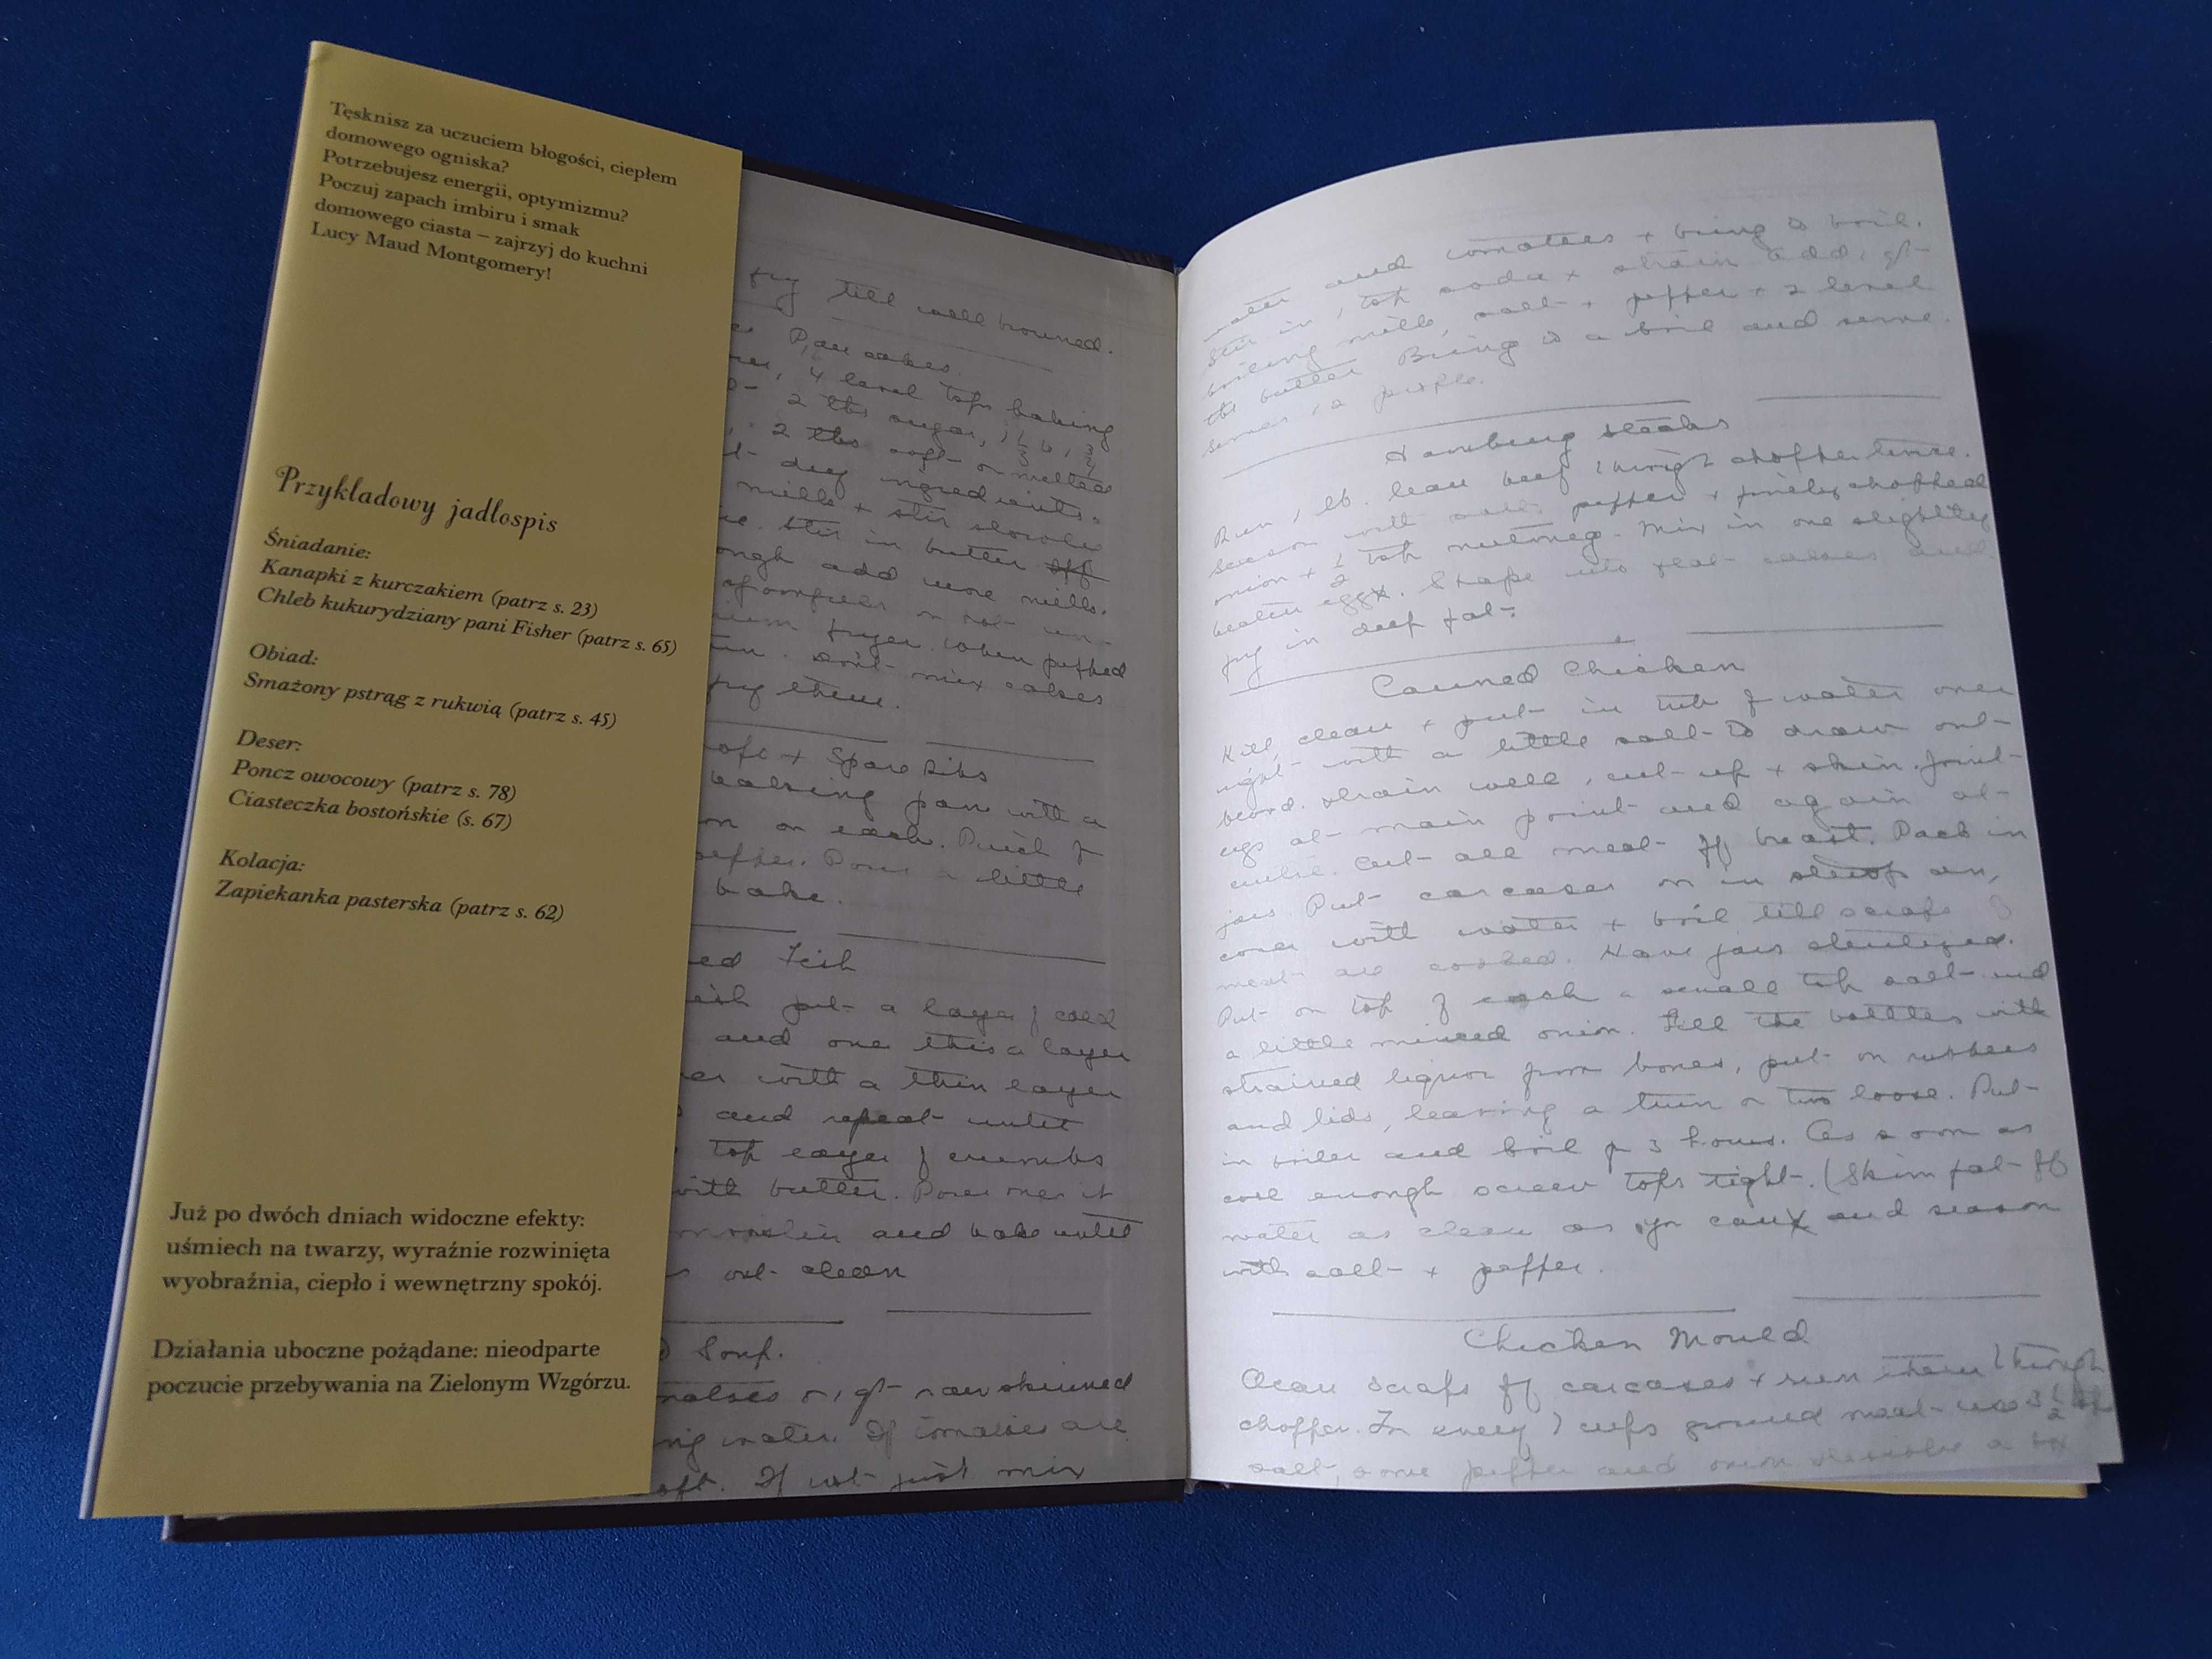 Tęsknisz za uczuciem błogości, ciepłem
domowego ogniska?
Potrzebujesz energii, optymizmu?
Poczuj zapach imbiru i smak
domowego ciasta – zajrzyj do kuchni
Lucy Maud Montgomery!
Przykładowy jadłospis
Śniadanie:
Kanapki z kurczakiem (patrz s. 23)
Chleb kukurydziany pani Fisher (patrz s. 65)
Obiad:
Smażony pstrąg z rukwią (patrz s. 45)
Deser:
Poncz owocowy (patrz s. 78)
Ciasteczka bostońskie (s. 67)
Kolacja:
Zapiekanka pasterska (patrz s. 62)
Już po dwóch dniach widoczne efekty:
uśmiech na twarzy, wyraźnie rozwinięta
wyobraźnia, ciepło i wewnętrzny spokój.
Działania uboczne pożądane: nieodparte
poczucie przebywania na Zielonym Wzgórzu.
fry till well browned.
Pan cakes.
4 level tsps baking
2 tbs sugar, 1
2 tbs soft or melted
dry ingredients.
milk + stir slowly
stir in butter
add more milk.
fryer. When puffed
mix cakes
fry them.
+ Spare Ribs
baking pan with a
on each. Pinch of
pepper. Pour a little
bake.
Fish
put a layer of cold
and over this a layer
with a thin layer
and repeat until
top layer of crumbs
with butter. Pour over it
and bake until
out clean
Soup.
or 1 qt raw skinned
water. If tomatoes are
soft. If not just mix
water and tomatoes + bring to boil.
Stir in 1 tsp soda + strain add 1 qt
boiling milk, salt + pepper + 2 level
tbs butter Bring to a boil and serve.
Serves 12 people.
Hamburg Steaks
Run 1 lb. lean beef through chopper twice.
Season with salt, pepper + finely chopped
onion + 1/2 tsp nutmeg. Mix in one slightly
beaten egg. Shape into flat cakes and
fry in deep fat.
Canned Chicken
Kill, clean + put in tub of water over
night with a little salt to draw out
blood. Drain well, cut up + skin. Joint
legs at main joint and again at
Cut all meat off breast. Pack in
jars. Put carcases on in
cover with water + boil till scraps of
meat are cooked. Have jars sterilized.
Put on top of each a small tsp salt and
a little minced onion. Fill the bottles with
strained liquor from bones, put on rubbers
and lids, leaving a turn or two loose. Put
in boiler and boil for 3 hours. As soon as
cool enough screw tops tight. (Skim fat off
water as clean as you can) and season
with salt + pepper.
Chicken Mould
Clean scraps off carcases + run them through
chopper. To every 7 cups ground meat use 3 1/2 tsp
salt, some pepper and onion